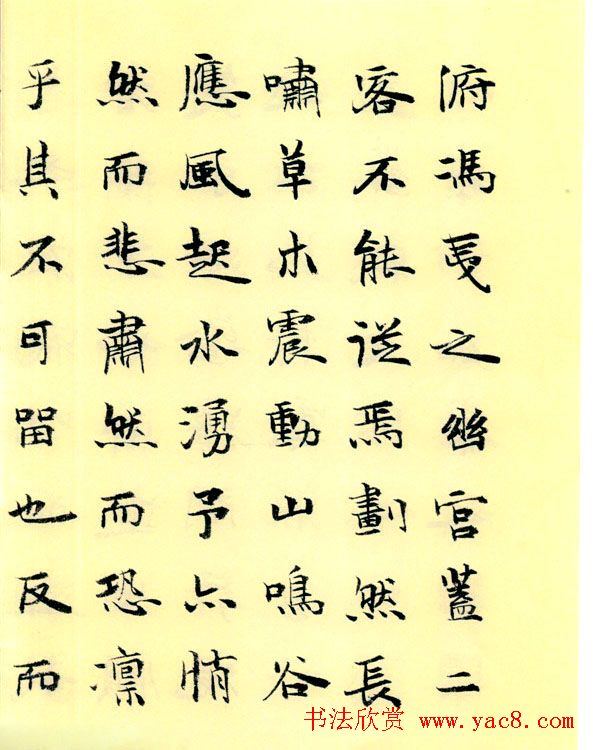 俯馮夷之幽宮蓋二
客不能從焉劃然長
嘯草木震動山鳴谷
應風起水湧予亦悄
然而悲肅然而恐凜
乎其不可留也反而
书法欣赏 www.yac8.com